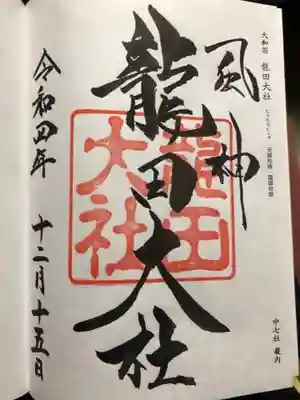 大和国 龍田大社
風神
龍田大社
龍田
大社
令和四年 十二月十五日
中七社 畿内